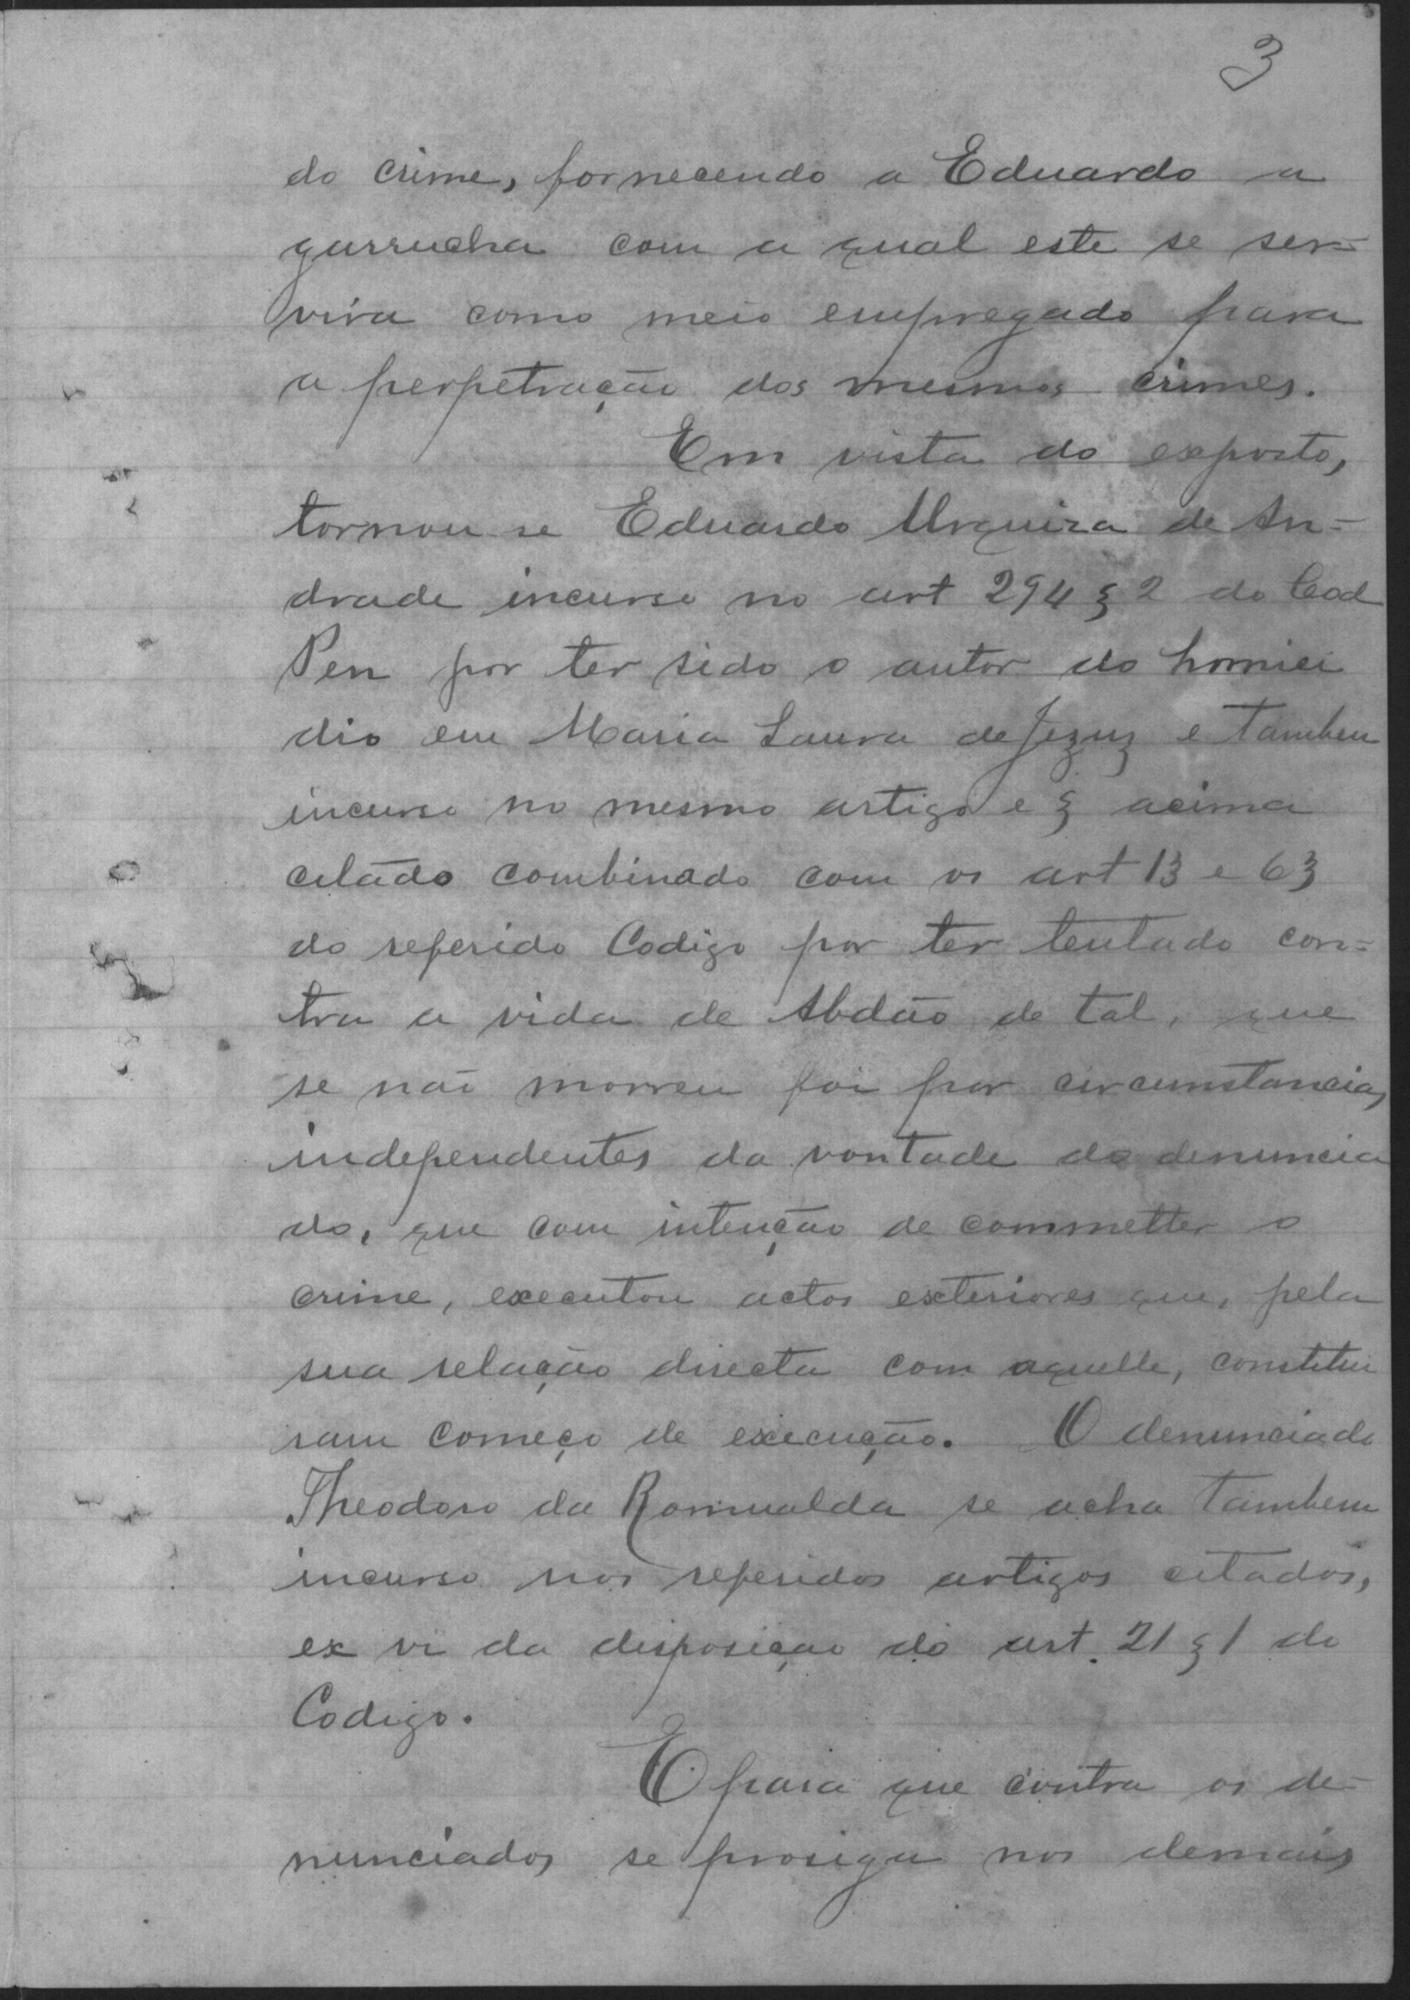 3
do crime, fornecendo a Eduardo a
garrucha com a qual este se ser=
vira como meio empregado para
a perpetração dos mesmos crimes.
Em vista do exposto,
tornou-se Eduardo Urquiza de An=
drade incurso no art 294 § 2 do Cod
Pen por ter sido o autor do homici
dio em Maria Laura de Jezuz e tambem
incurso no mesmo artigo e § acima
citado combinado com os art 13 e 63
do referido Codigo por ter tentado con=
tra a vida de Abdão de tal, que
se não morreu foi por circumstancias
independentes da vontade do denuncia
do, que com intenção de commetter o
crime, executou actos exteriores que, pela
sua relação directa com aquelle, constitui
ram começo de execução. O denunciado
Theodoro da Romualda se acha tambem
incurso nos referidos artigos citados,
ex vi da disposição do art. 21 § 1 do
Codigo.
E para que contra os de=
nunciados se prosiga nos demais